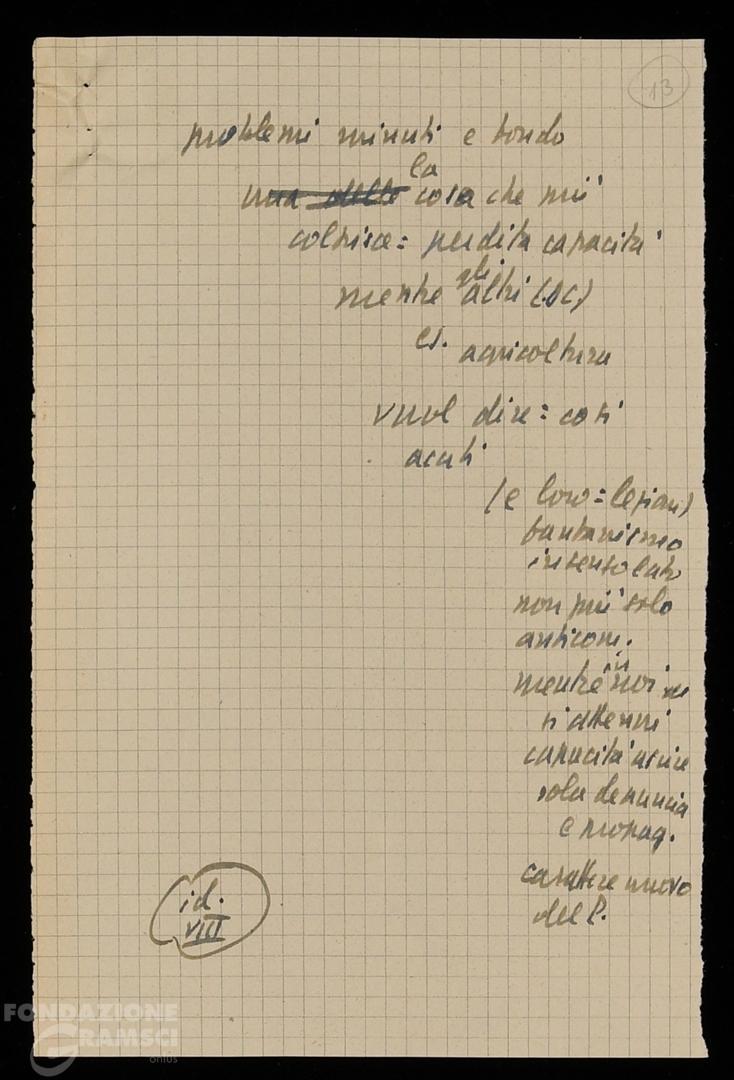 13
problemi minuti e fondo
una delle la cosa che più
colpisce = perdita capacità
mentre gli altri (DC)
es. agricoltura
vuol dire = così
acuti
(e loro =
non più solo
anticom.
mentre in noi
si attenui
capacità
sola denuncia
e propag.
carattere nuovo
del P.
id.
VIII
FONDAZIONE
GRAMSCI
onlus